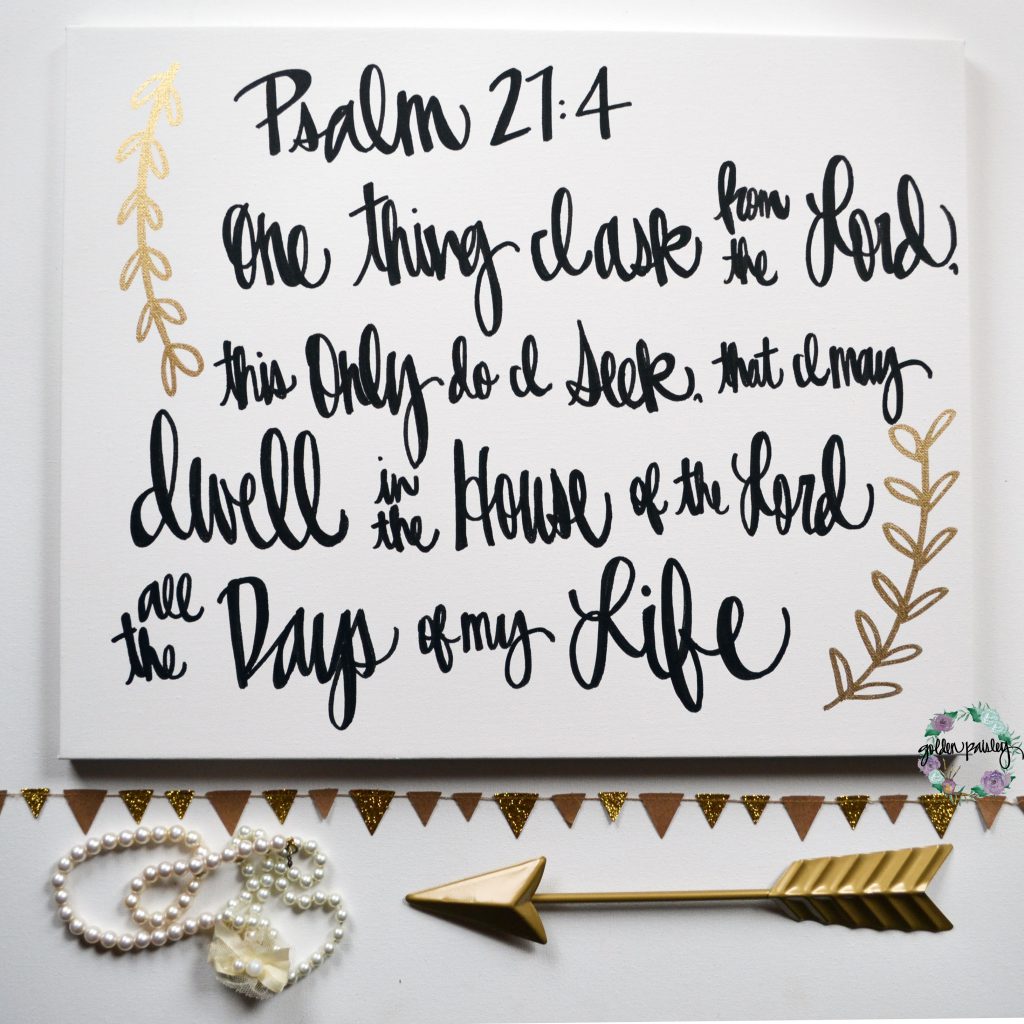 Psalm 27:4
One thing I ask from the Lord,
this Only do I Seek, that I may
dwell in the House of the Lord
all the Days of my Life
golden paisley